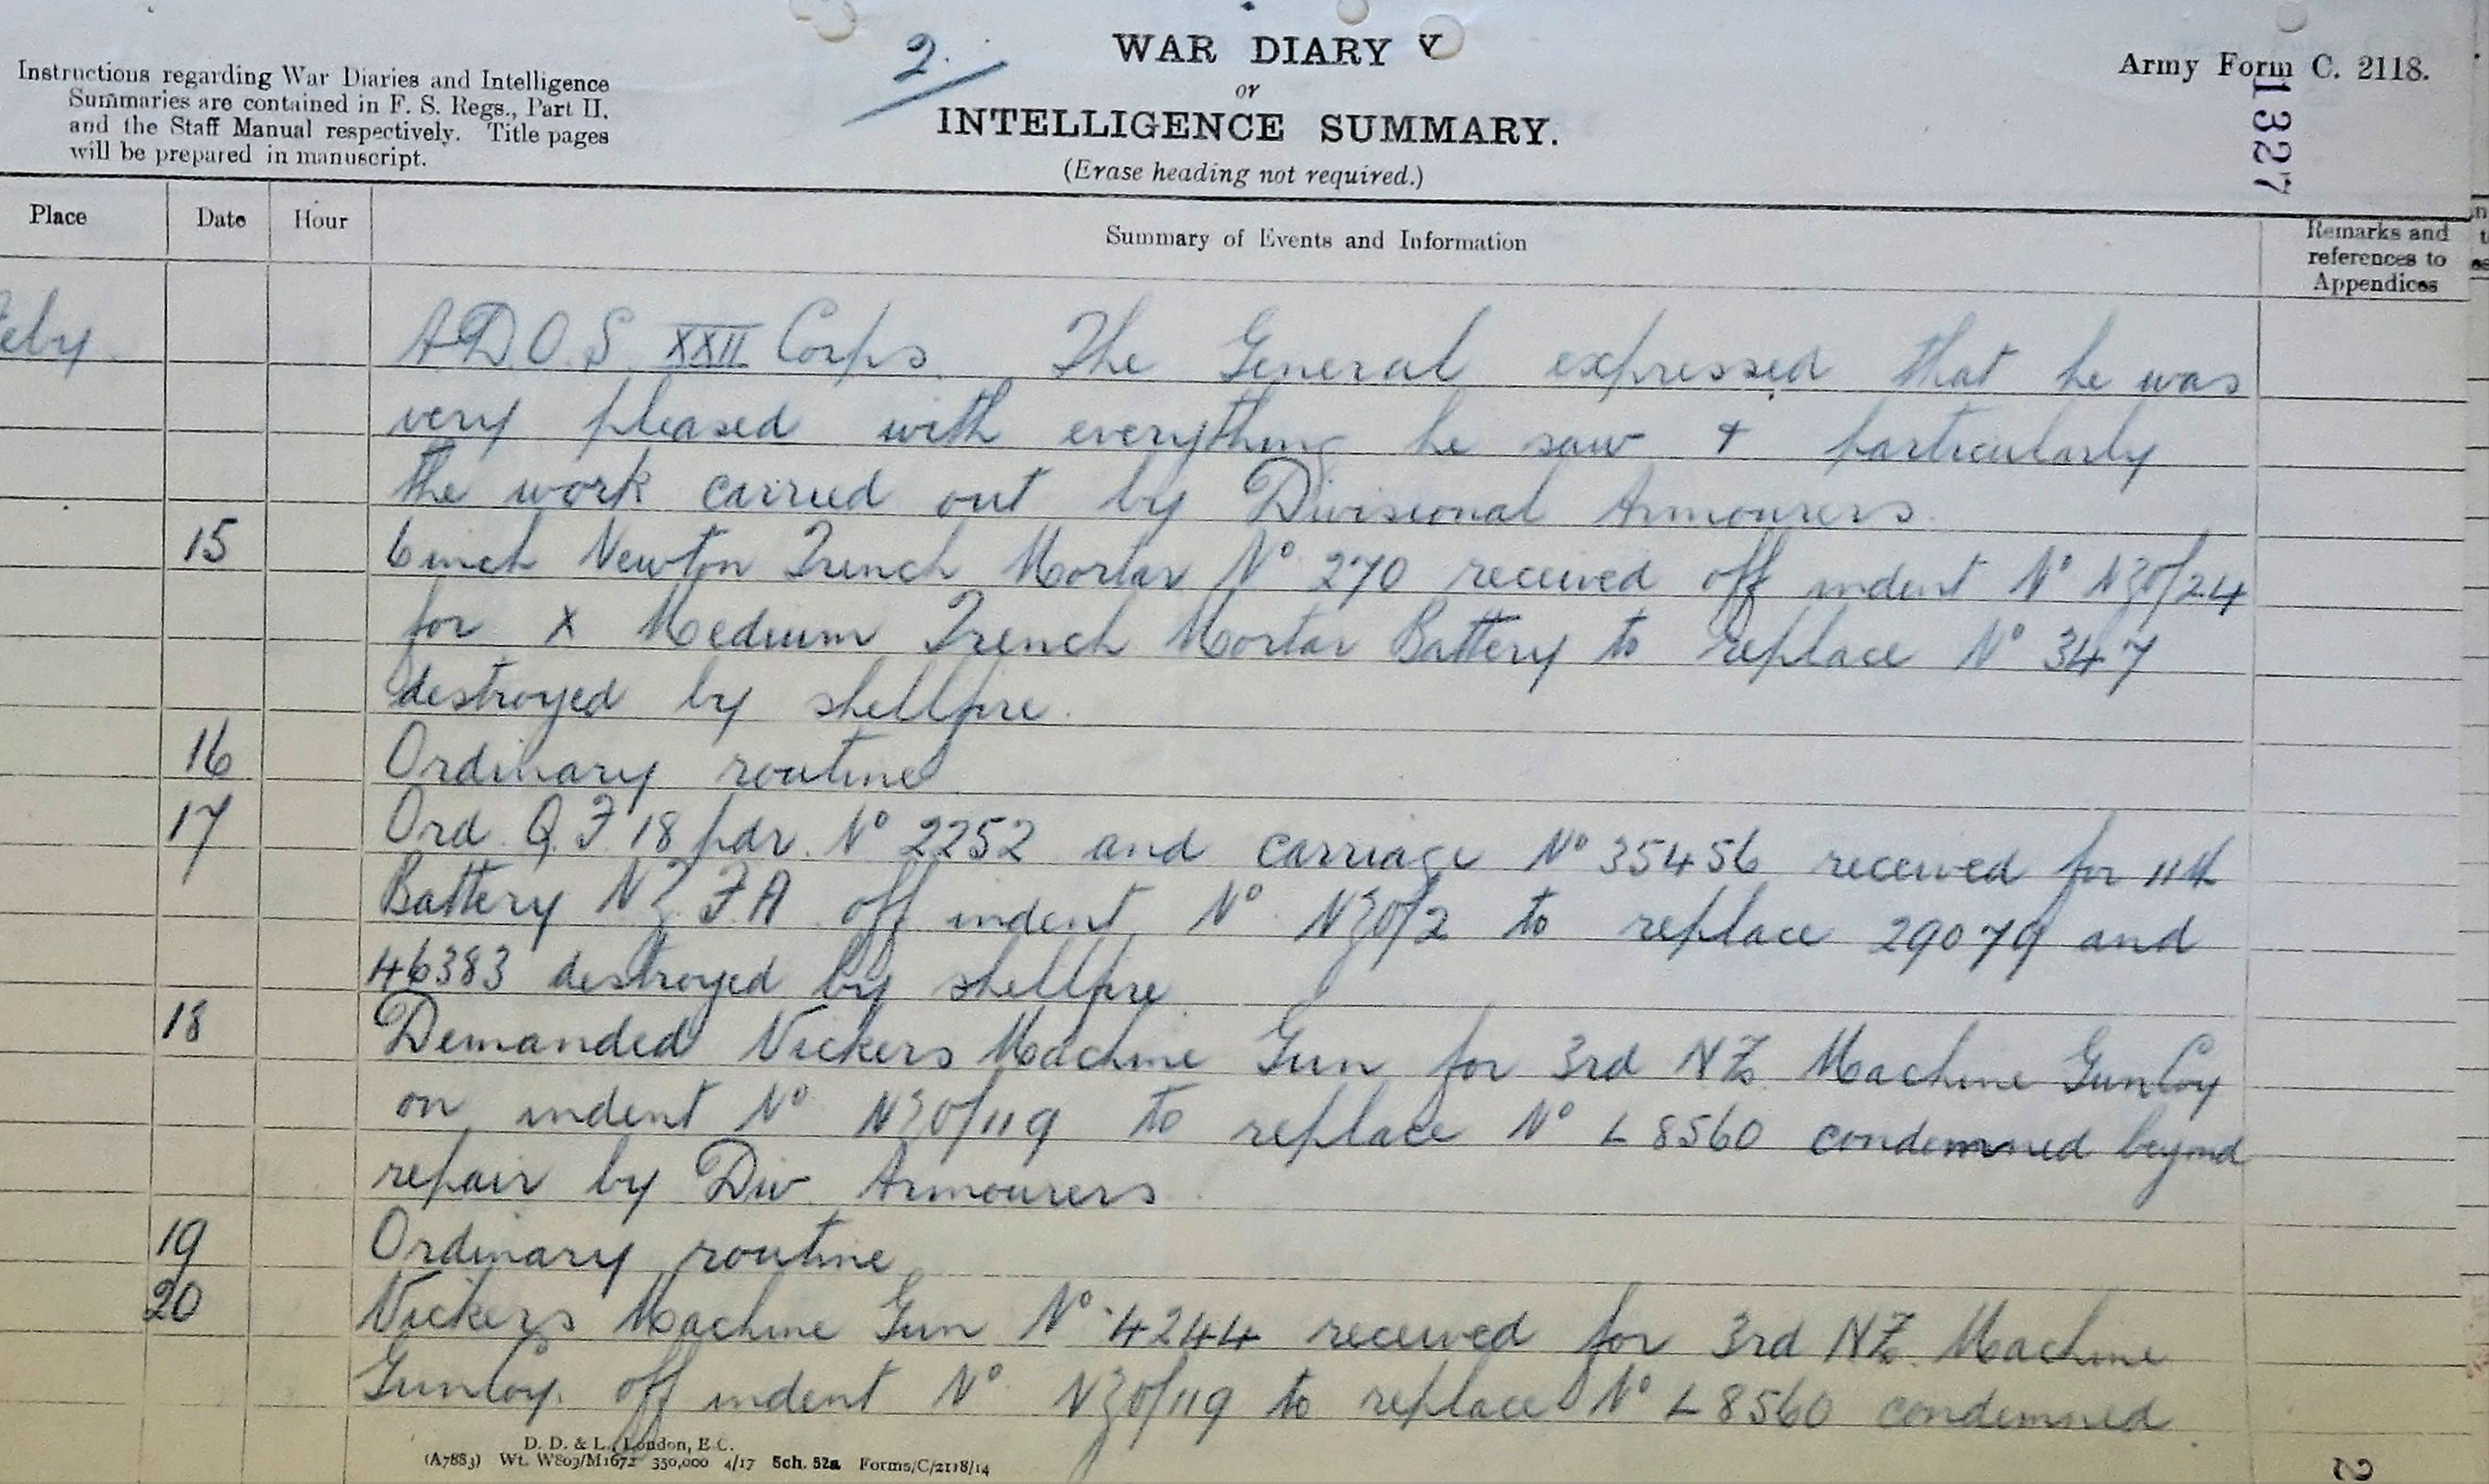 2.
WAR DIARY
or
INTELLIGENCE SUMMARY.
(Erase heading not required.)
Army Form C. 2118.
1327
Instructions regarding War Diaries and Intelligence
Summaries are contained in F. S. Regs., Part II.
and the Staff Manual respectively. Title pages
will be prepared in manuscript.
Place Date Hour Summary of Events and Information Remarks and
references to
Appendices
A.D.O.S XXII Corps. The General expressed that he was
very pleased with everything he saw & particularly
the work carried out by Divisional Armourers.
15 6 inch Newton Trench Mortar Nº 270 received off indent Nº NZO/24
for X Medium Trench Mortar Battery to replace Nº 347
destroyed by shellfire.
16 Ordinary routine
17 Ord. Q.F. 18 pdr. Nº 2252 and carriage Nº 35456 received for 11th
Battery N.Z.F.A. off indent Nº NZO/2 to replace 29079 and
46383 destroyed by shellfire
18 Demanded Vickers Machine Gun for 3rd NZ. Machine Gun Coy
on indent Nº NZO/119 to replace Nº L 8560 condemned beyond
repair by Div. Armourers.
19 Ordinary routine
20 Vickers Machine Gun Nº 4244 received for 3rd NZ. Machine
Gun Coy. off indent Nº NZO/119 to replace Nº L 8560 condemned
D. D. & L., London, E.C.
(A7883) Wt. W809/M1672 350,000 4/17 Sch. 52a Forms/C/2118/14